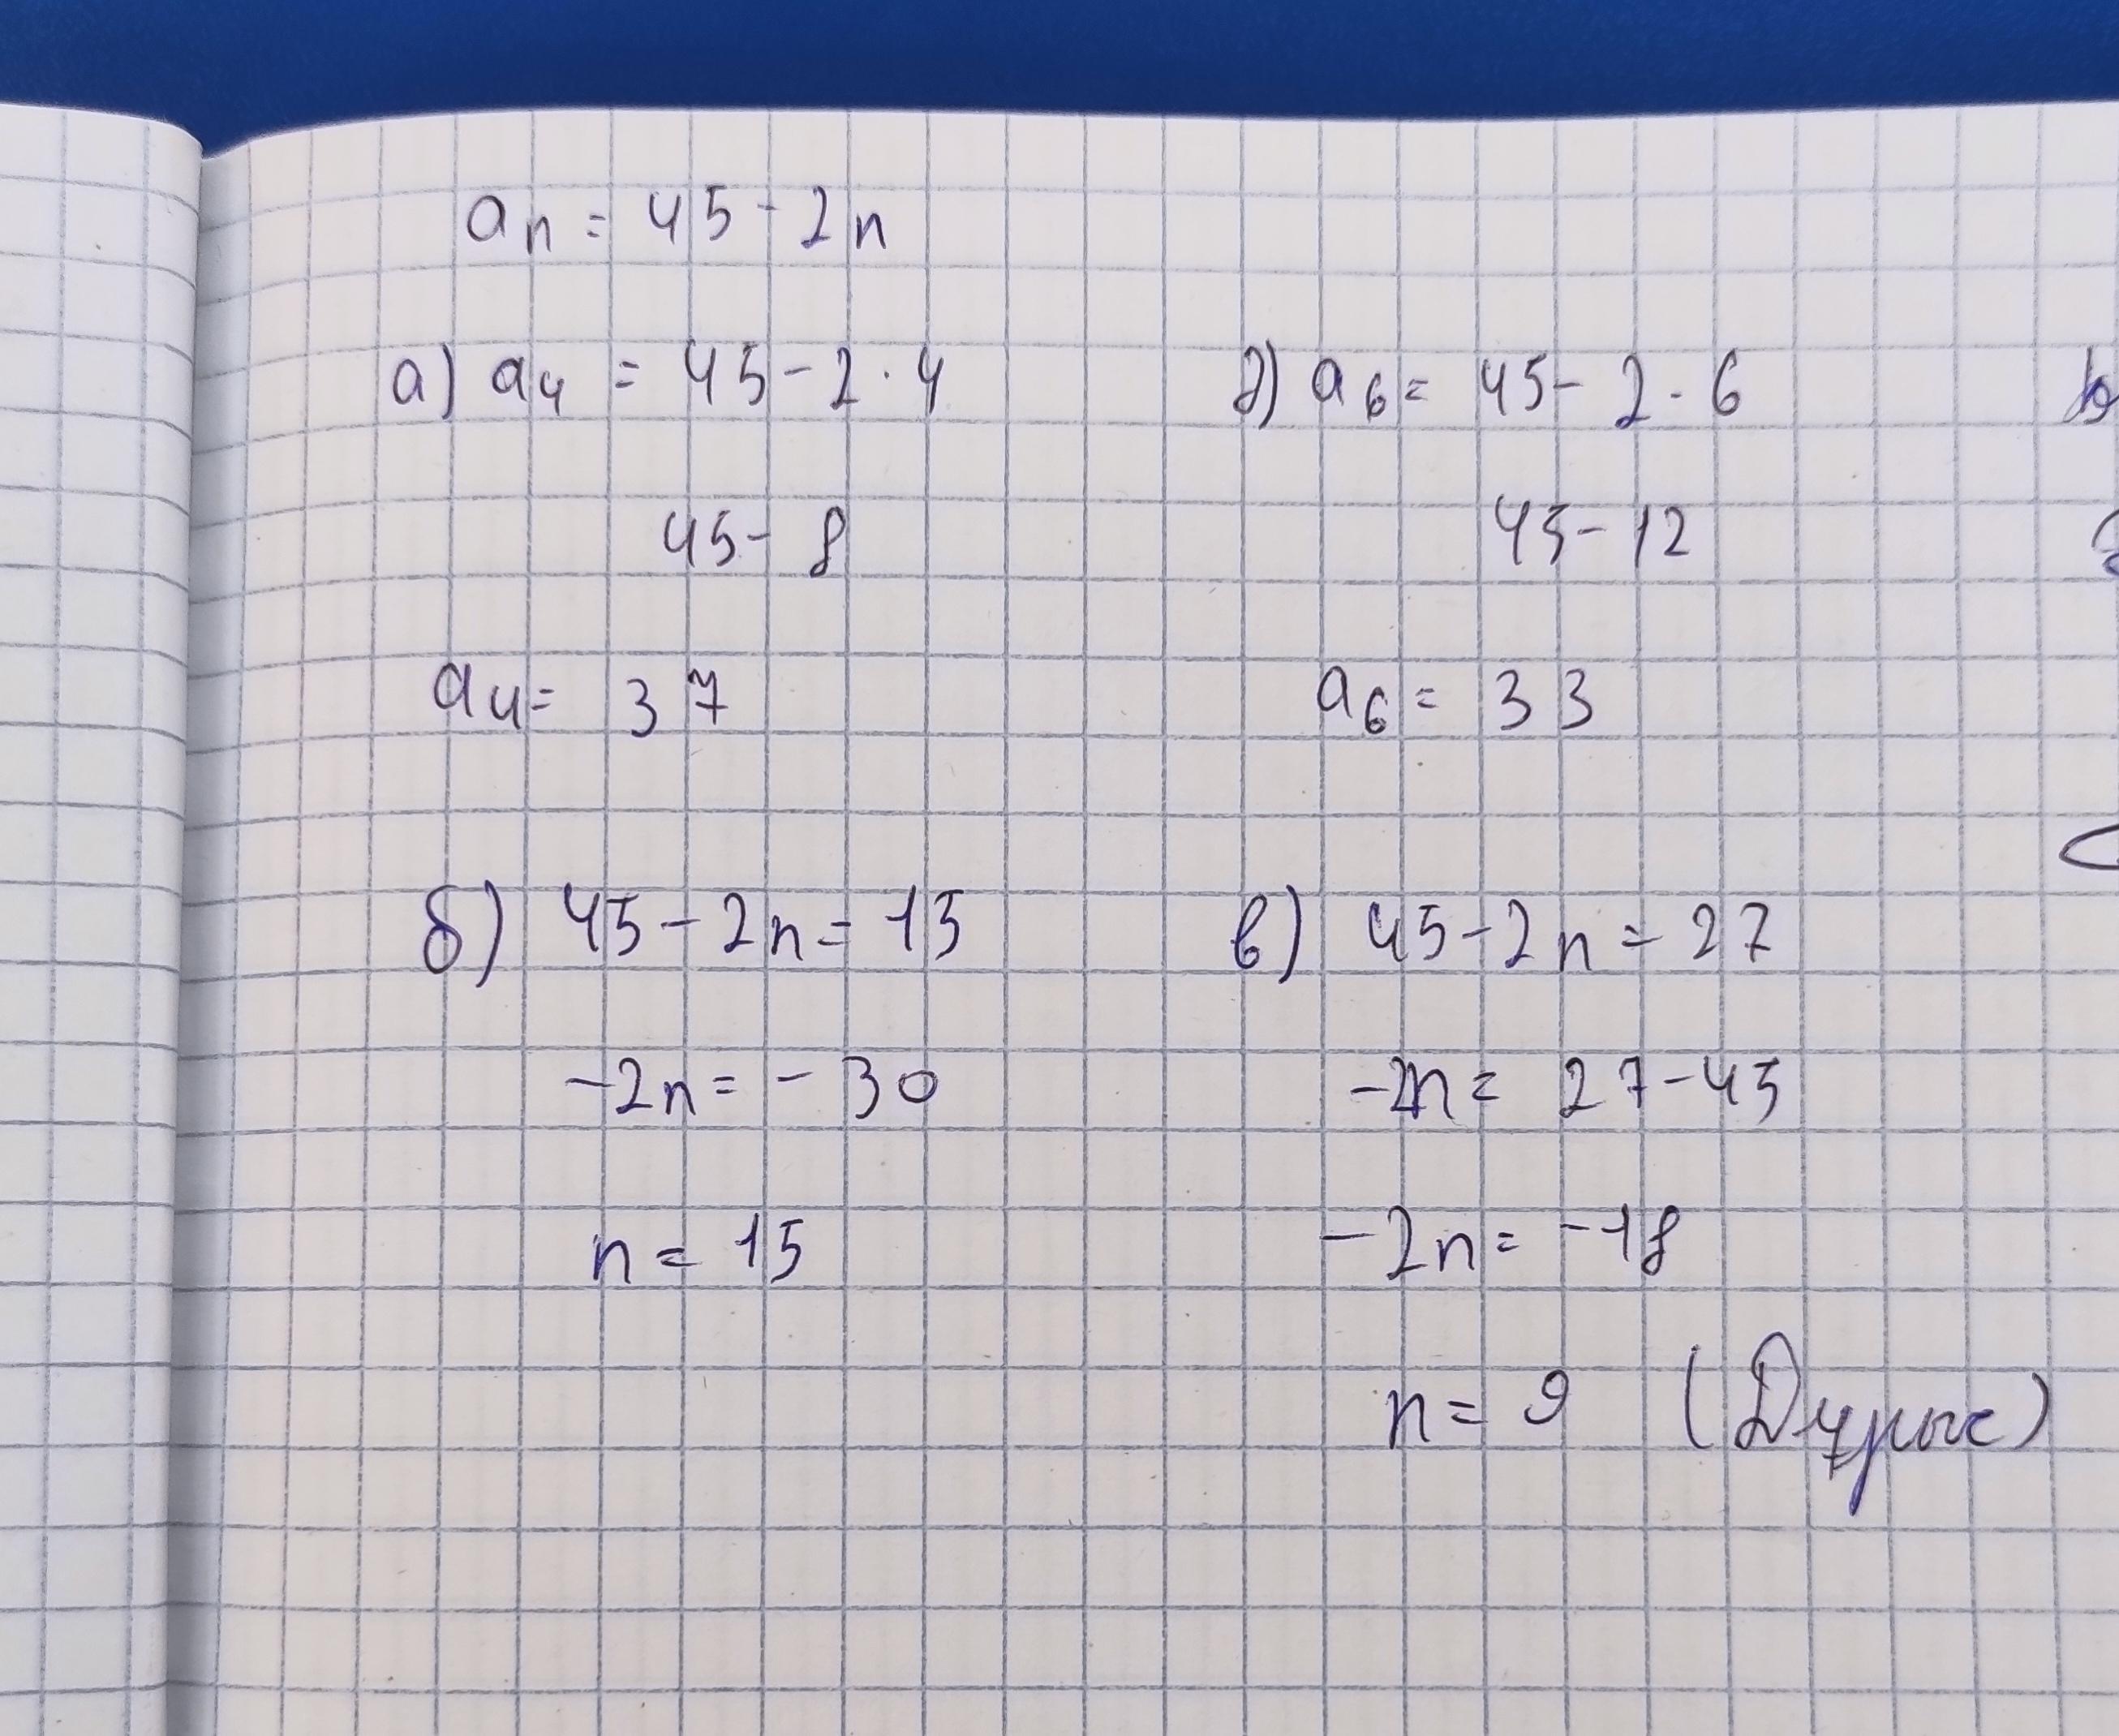 an = 45 - 2n
а) a4 = 45 - 2 · 4
45 - 8
a4 = 37
д) a6 = 45 - 2 · 6
45 - 12
a6 = 33
б) 45 - 2n = 15
-2n = - 30
n = 15
в) 45 - 2n = 27
-2n = 27 - 45
-2n = -18
n = 9 (Дұрыс)